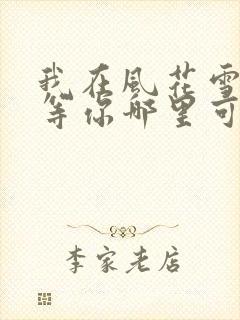 我在風花雪
等你哪里可
李家老店